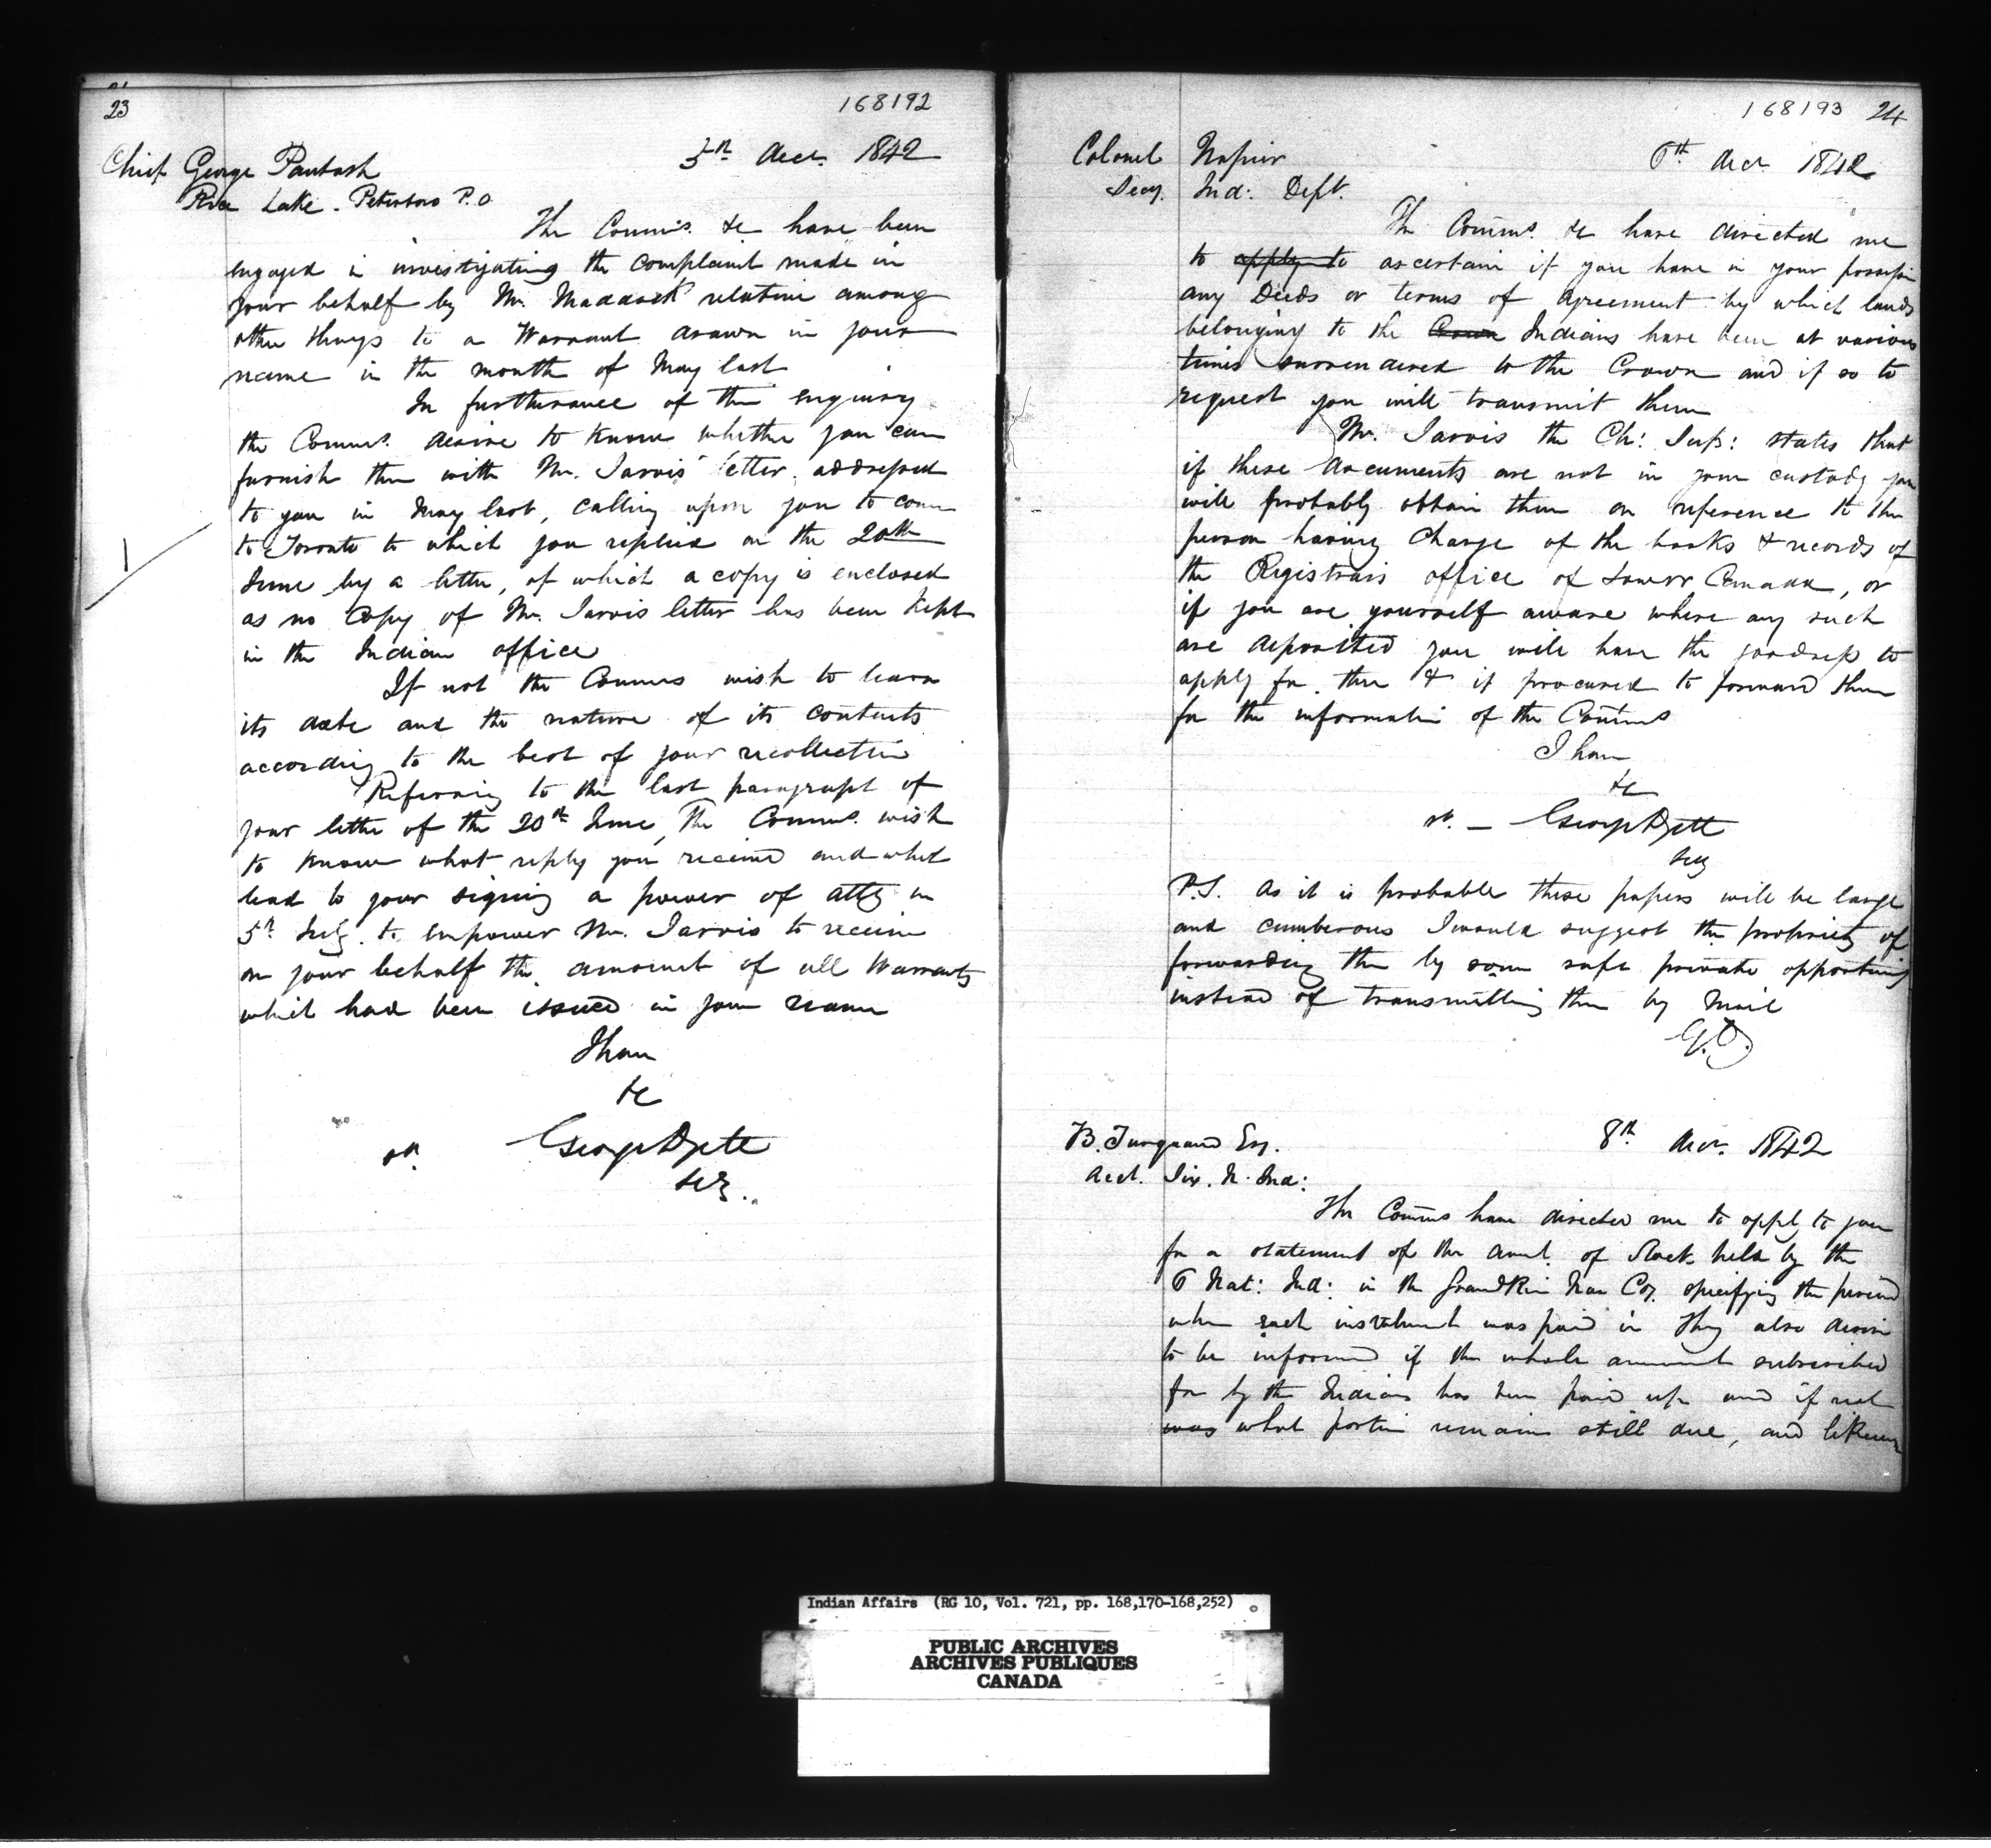 23
168192
Chief George Pautash
5th Decr. 1842
Rice Lake - Peterboro P.O
The Commrs. &c have been
engaged in investigating the complaint made in
your behalf by Mr. Maddock relative among
other things to a Warrant drawn in your
name in the month of May last
In furtherance of this enquiry
the Commrs. desire to know whether you can
furnish them with Mr. Jarvis' letter addressed
to you in May last, calling upon you to come
to Toronto to which you replied on the 20th
June by a letter, of which a copy is enclosed
as no Copy of Mr. Jarvis letter has been kept
in the Indian office
If not the Commrs wish to learn
its date and the nature of its contents
according to the best of your recollection
Referring to the last paragraph of
your letter of the 20th June, The Commrs. wish
to know what reply you received and what
lead to your signing a power of atty on
5th July to empower Mr. Jarvis to receive
on your behalf the amount of all Warrants
which had been issued in your name
I have
&c
George Dyett
Secy.
168193 24
Colonel Napier
6th Decr 1842
Secy. Ind: Dept.
The Comms. &c have directed me
to apply to ascertain if you have in your possession
any Deeds or terms of agreement by which lands
belonging to the Crown Indians have been at various
times surrendered to the Crown and if so to
request you will transmit them
Mr. Jarvis the Ch: Sup: states that
if these documents are not in your custody you
will probably obtain them on reference to the
person having Charge of the books & records of
the Registrars office of Lower Canada, or
if you are yourself aware where any such
are deposited you will have the goodness to
apply for them & if procured to forward them
for the information of the Comms
I have
&c
George Dyett
Secy
P.S. As it is probable these papers will be large
and cumberous I would suggest the propriety of
forwarding them by some safe private opportunity
instead of transmitting them by Mail
G.D.
B. Turquand Esq.
8th Decr. 1842
Acct. Six. N. Ind:
The Comms have directed me to apply to you
for a statement of the amt. of Stock held by the
6 Nat: Ind: in the Grand River Nav Coy. specifying the period
when each instalment was paid in They also desire
to be informed if the whole amount subscribed
for by the Indians has been paid up and if not
was what portion remains still due, and likewise
Indian Affairs (RG 10, Vol. 721, pp. 168,170-168,252)
PUBLIC ARCHIVES
ARCHIVES PUBLIQUES
CANADA